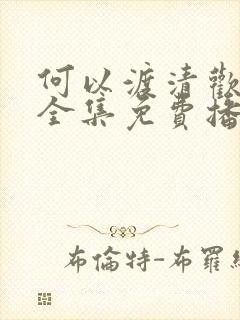 何以渡清歡
全集免費播
布倫特-布羅